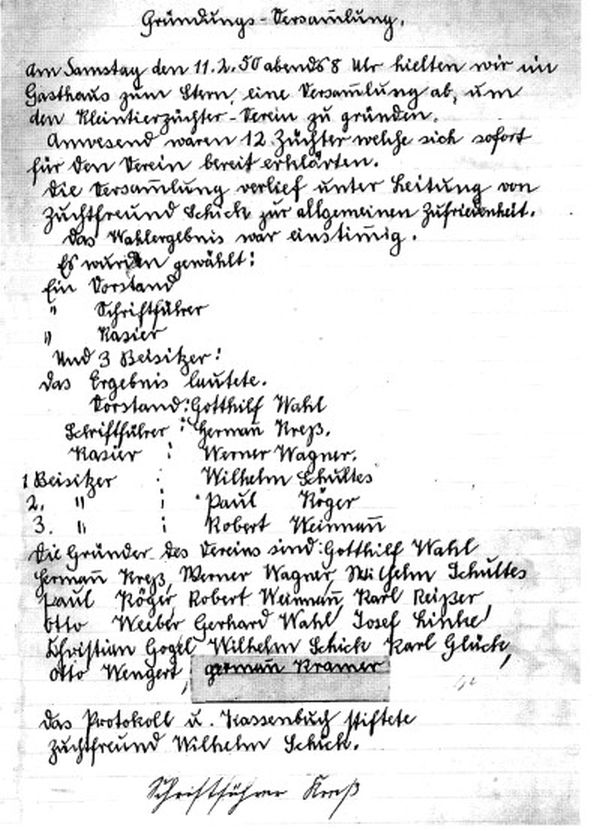 Gründungs-Versam̄lung.
Am Samstag den 11.2.50 abends 8 Uhr hielten wir im
Gasthaus zum Stern, eine Versam̄lung ab, um
den Kleintierzüchter-Verein zu gründen.
Anwesend waren 12 Züchter welche sich sofort
für den Verein bereit erklärten.
Die Versam̄lung verlief unter Leitung von
Zuchtfreund Schick zur allgemeinen Zufriedenheit.
Das Wahlergebnis war einstim̄ig.
Es wurden gewählt:
Ein Vorstand
" Schriftführer
" Kasier
Und 3 Beisitzer:
Das Ergebnis lautete.
Vorstand: Gotthilf Wahl
Schriftführer : Herman̄ Kreß.
Kasier : Werner Wagner.
1 Beisitzer : Wilhelm Schultes
2. " : Paul Röger
3. " : Robert Weinman̄
Die Gründer des Vereins sind: Gotthilf Wahl
Herman̄ Kreß, Werner Wagner Wilhelm Schultes
Paul Röger, Robert Weinman̄, Karl Reißer,
Otto Weiber Gerhard Wahl Josef
Christian Gogel Wilhelm Schick Karl Glück,
Otto Wengert, Herman̄ Kramer
Das Protokoll u. Kassenbuch stiftete
Zuchtfreund Wilhelm Schick.
Schriftführer Kreß